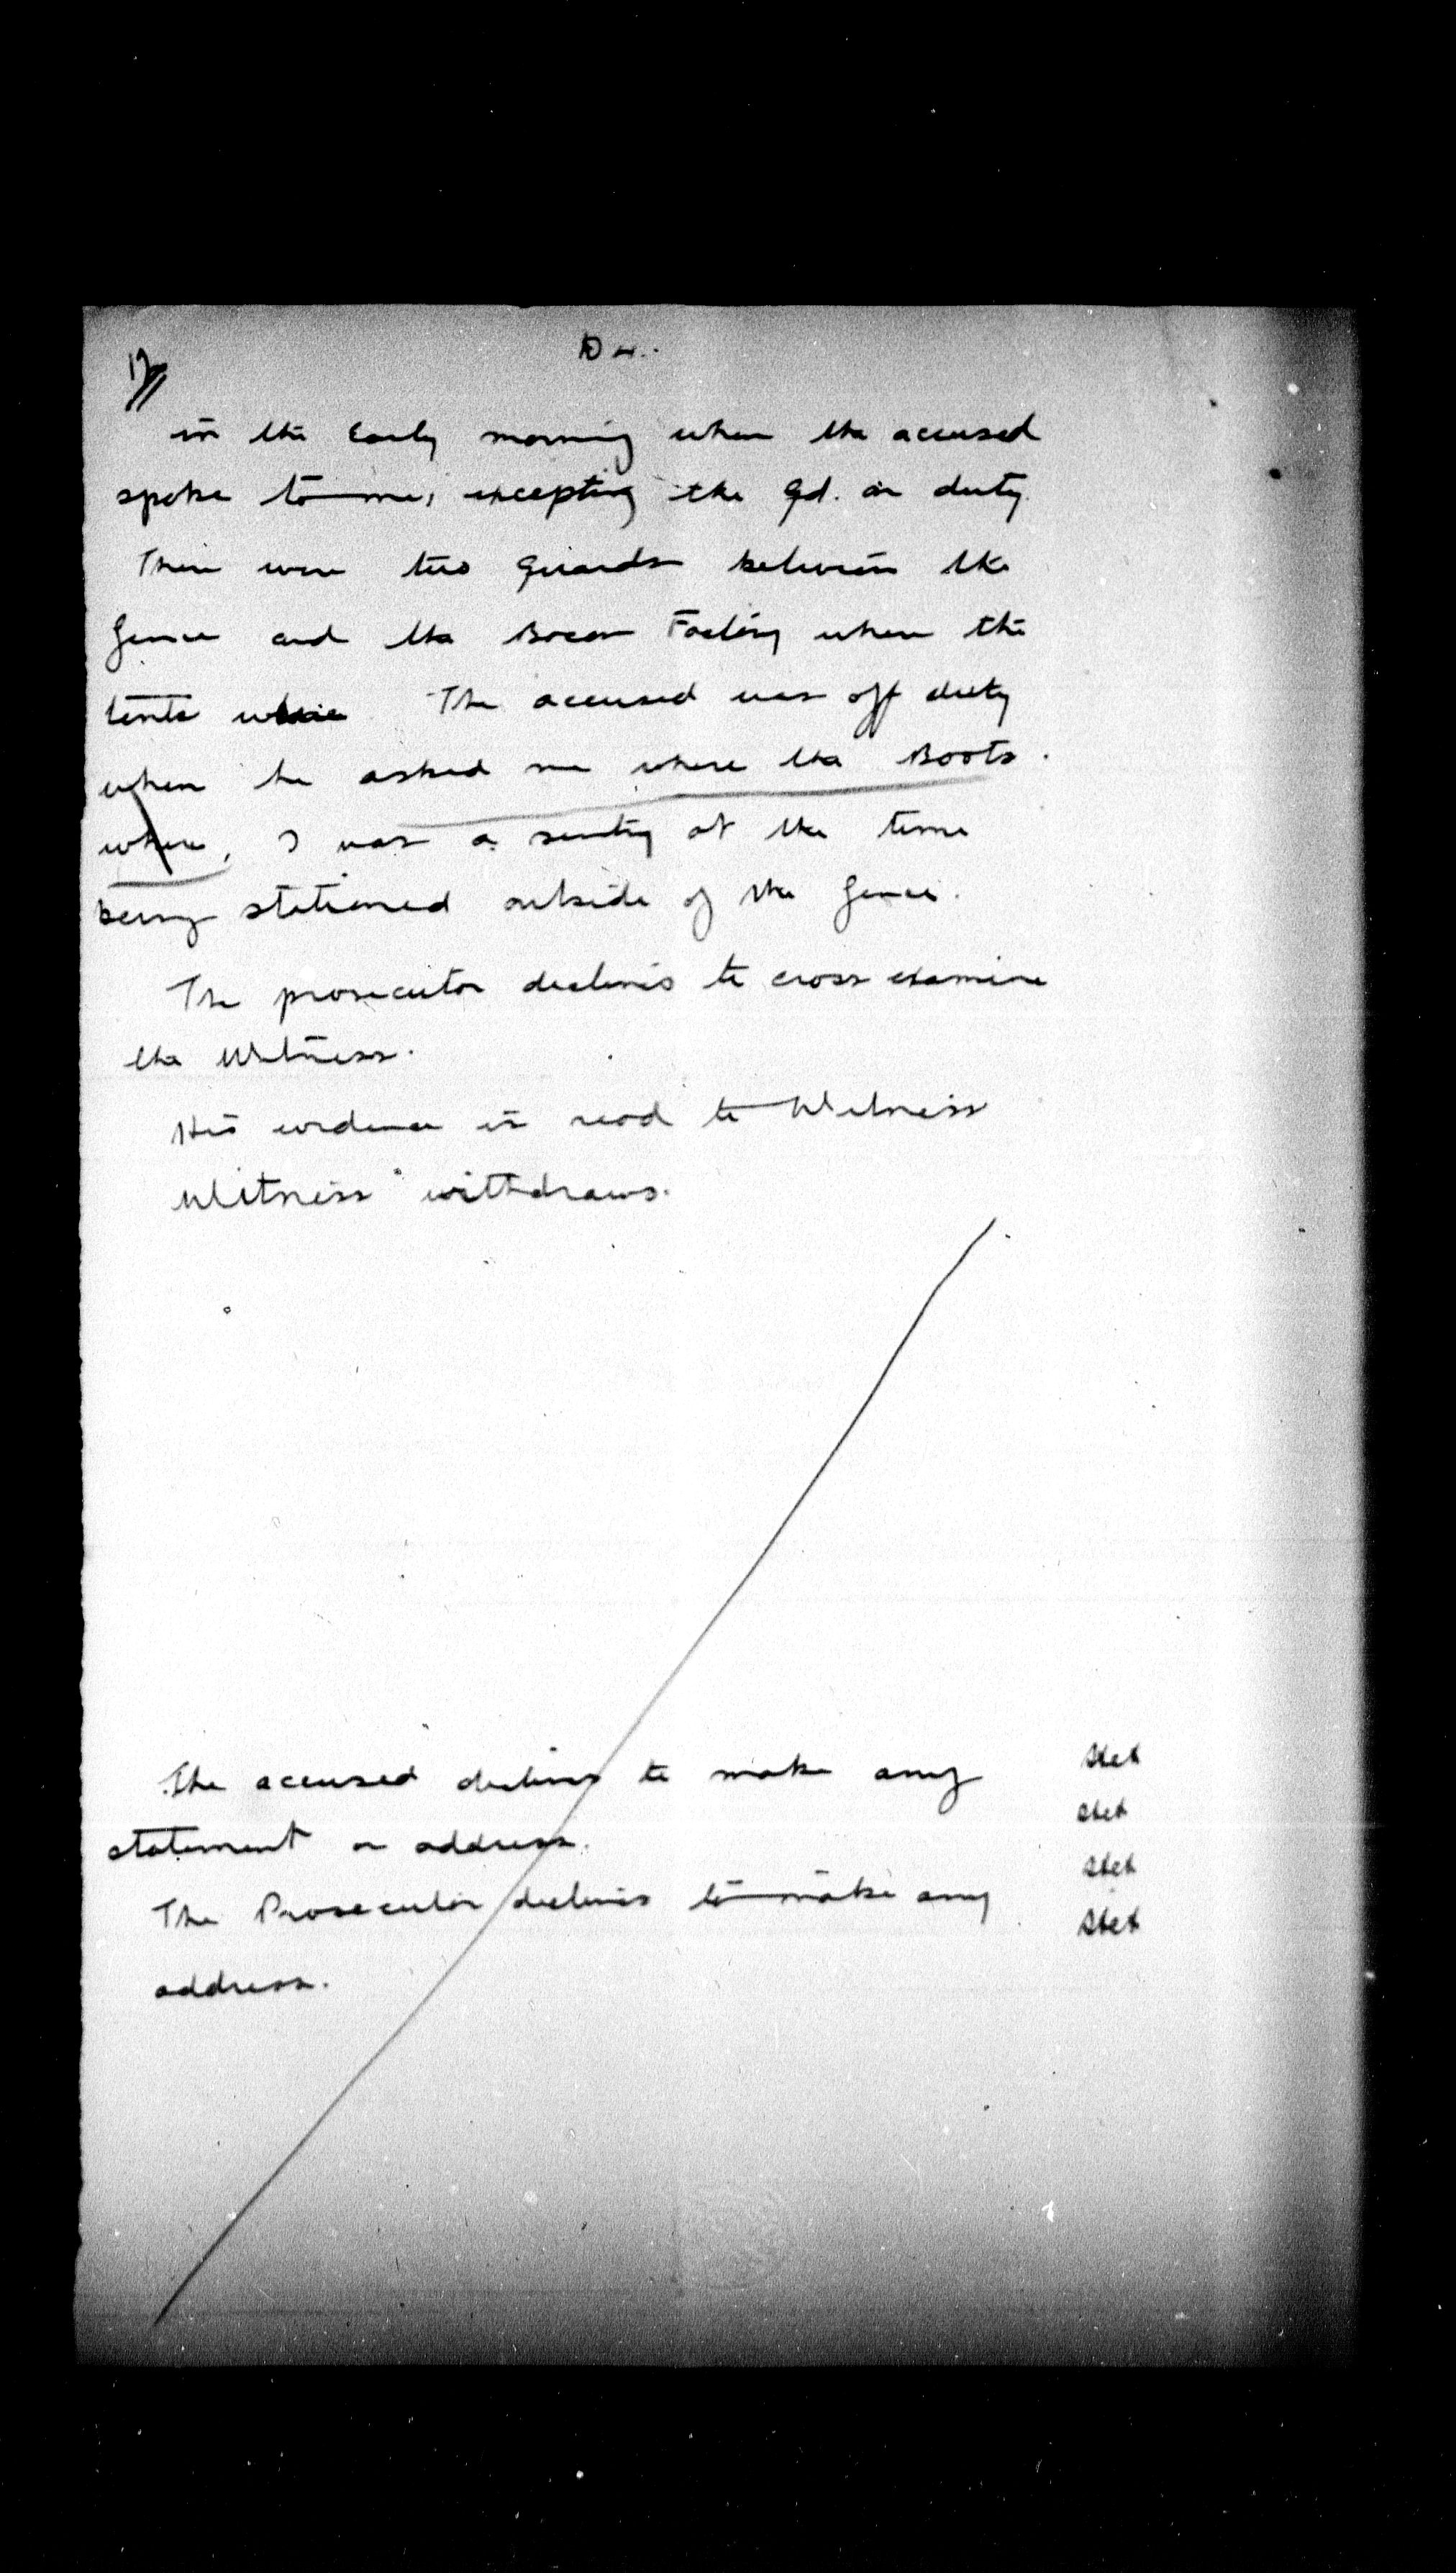 in the Early morning when the accused
spoke to me, excepting the Gd. on duty
There were two Guards between the
fence and the Bacon Factory where the
tents where The accused was off duty
when he asked me where the Boots
where, I was a sentry at the time
being stationed outside of the fence.
The prosecutor declines to cross examine
the Witness.
His evidence is read to Witness
Witness withdraws.
The accused declines to make any stet
statement or address. stet
The Prosecutor declines to make any stet
address. stet